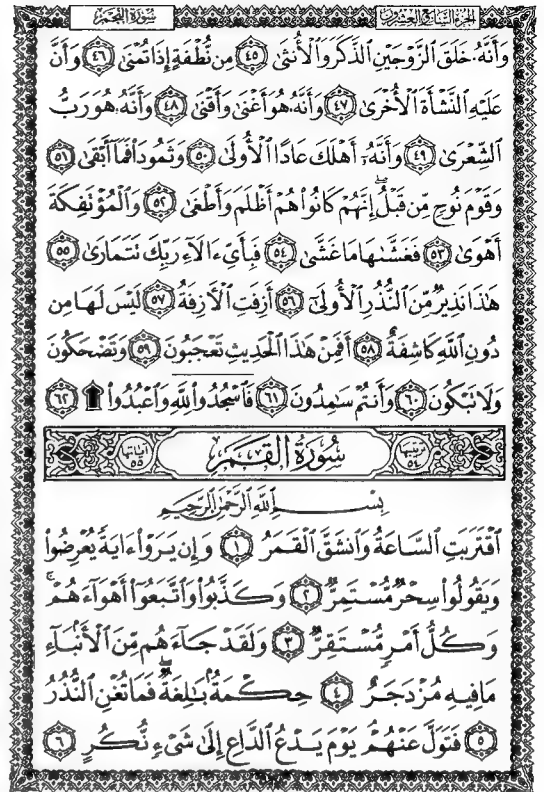 الجزء السابع والعشرون
سورة النجم
وَأَنَّهُۥ خَلَقَ ٱلزَّوْجَيْنِ ٱلذَّكَرَ وَٱلْأُنثَىٰ ٤٥ مِن نُّطْفَةٍ إِذَا تُمْنَىٰ ٤٦ وَأَنَّ
عَلَيْهِ ٱلنَّشْأَةَ ٱلْأُخْرَىٰ ٤٧ وَأَنَّهُۥ هُوَ أَغْنَىٰ وَأَقْنَىٰ ٤٨ وَأَنَّهُۥ هُوَ رَبُّ
ٱلشِّعْرَىٰ ٤٩ وَأَنَّهُۥٓ أَهْلَكَ عَادًا ٱلْأُولَىٰ ٥٠ وَثَمُودَا۟ فَمَآ أَبْقَىٰ ٥١
وَقَوْمَ نُوحٍ مِّن قَبْلُ ۖ إِنَّهُمْ كَانُوا۟ هُمْ أَظْلَمَ وَأَطْغَىٰ ٥٢ وَٱلْمُؤْتَفِكَةَ
أَهْوَىٰ ٥٣ فَغَشَّىٰهَا مَا غَشَّىٰ ٥٤ فَبِأَىِّ ءَالَآءِ رَبِّكَ تَتَمَارَىٰ ٥٥
هَٰذَا نَذِيرٌ مِّنَ ٱلنُّذُرِ ٱلْأُولَىٰٓ ٥٦ أَزِفَتِ ٱلْءَازِفَةُ ٥٧ لَيْسَ لَهَا مِن
دُونِ ٱللَّهِ كَاشِفَةٌ ٥٨ أَفَمِنْ هَٰذَا ٱلْحَدِيثِ تَعْجَبُونَ ٥٩ وَتَضْحَكُونَ
وَلَا تَبْكُونَ ٦٠ وَأَنتُمْ سَٰمِدُونَ ٦١ فَٱسْجُدُوا۟ لِلَّهِ وَٱعْبُدُوا۟ ۩ ٦٢
ترتيبها ٥٤ سورة القمر آياتها ٥٥
بِسْمِ ٱللَّهِ ٱلرَّحْمَٰنِ ٱلرَّحِيمِ
ٱقْتَرَبَتِ ٱلسَّاعَةُ وَٱنشَقَّ ٱلْقَمَرُ ١ وَإِن يَرَوْا۟ ءَايَةً يُعْرِضُوا۟
وَيَقُولُوا۟ سِحْرٌ مُّسْتَمِرٌّ ٢ وَكَذَّبُوا۟ وَٱتَّبَعُوٓا۟ أَهْوَآءَهُمْ ۚ
وَكُلُّ أَمْرٍ مُّسْتَقِرٌّ ٣ وَلَقَدْ جَآءَهُم مِّنَ ٱلْأَنۢبَآءِ
مَا فِيهِ مُزْدَجَرٌ ٤ حِكْمَةٌۢ بَٰلِغَةٌ ۖ فَمَا تُغْنِ ٱلنُّذُرُ
٥ فَتَوَلَّ عَنْهُمْ ۘ يَوْمَ يَدْعُ ٱلدَّاعِ إِلَىٰ شَىْءٍ نُّكُرٍ ٦